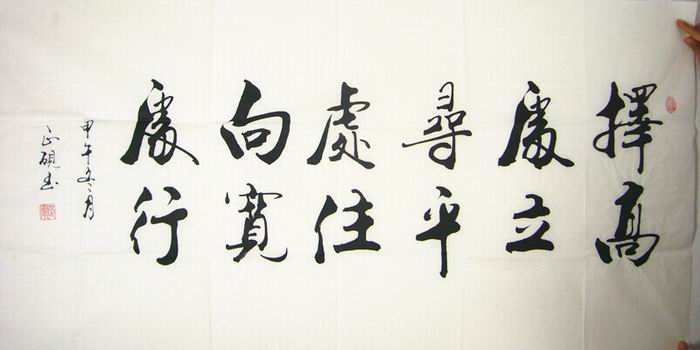 擇高
處立
尋平
處住
向寬
處行
甲午冬月
正硯书